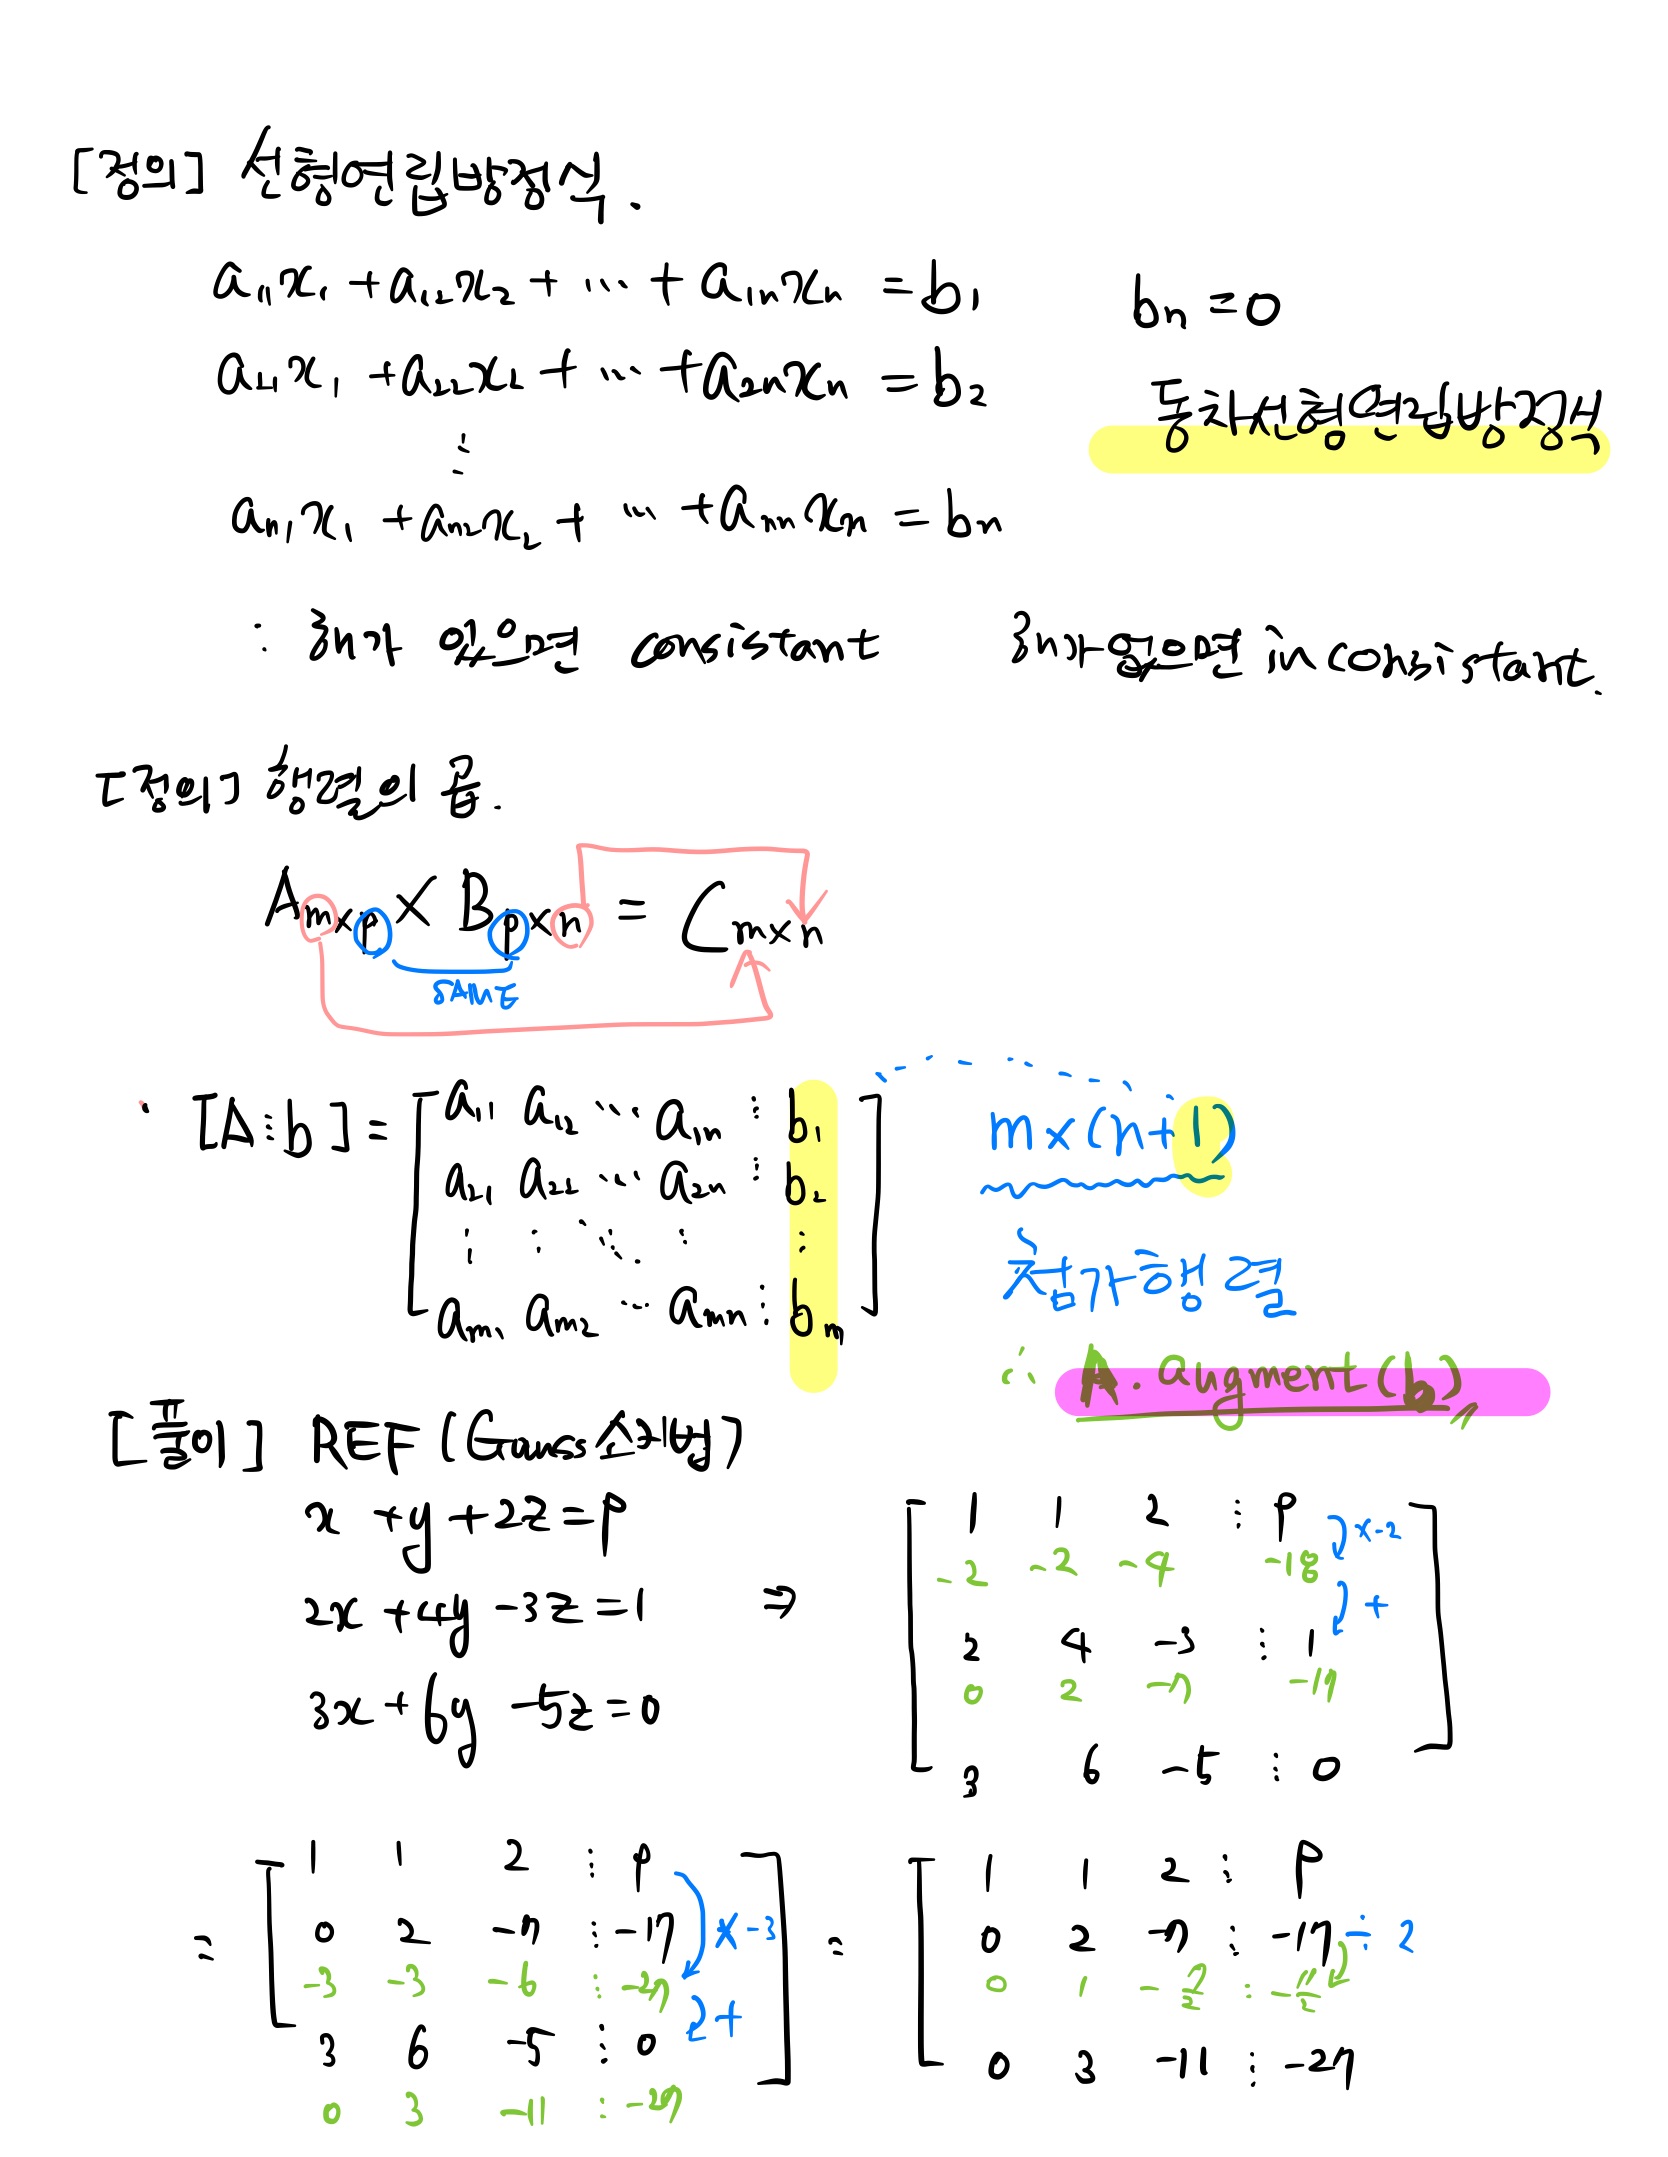 [정의] 선형연립방정식.
a₁₁x₁ + a₁₂x₂ + ⋯ + a₁ₙxₙ = b₁
a₂₁x₁ + a₂₂x₂ + ⋯ + a₂ₙxₙ = b₂
⋮
aₙ₁x₁ + aₙ₂x₂ + ⋯ + aₙₙxₙ = bₙ
bₙ = 0
동차선형연립방정식
: 해가 있으면 consistant 해가 없으면 inconsistant.
[정의] 행렬의 곱.
A m×p × B p×n = C m×n
SAME
· [A⋮b] = [ a₁₁ a₁₂ ⋯ a₁ₙ ⋮ b₁
a₂₁ a₂₂ ⋯ a₂ₙ ⋮ b₂
⋮ ⋮ ⋱ ⋮ ⋮
aₘ₁ aₘ₂ ⋯ aₘₙ ⋮ bₘ ]
m×(n+1)
첨가행렬
∴ A.augment(b)
[풀이] REF (Gauss 소거법)
x + y + 2z = 9
2x + 4y - 3z = 1
3x + 6y - 5z = 0
⇒
[ 1 1 2 ⋮ 9 ×-2
-2 -2 -4 -18
+
2 4 -3 ⋮ 1
0 2 -7 -17
3 6 -5 ⋮ 0 ]
= [ 1 1 2 ⋮ 9
0 2 -7 ⋮ -17 ×-3
-3 -3 -6 ⋮ -27
+
3 6 -5 ⋮ 0
0 3 -11 ⋮ -27 ]
= [ 1 1 2 ⋮ 9
0 2 -7 ⋮ -17 ÷ 2
0 1 -7/2 ⋮ -17/2
0 3 -11 ⋮ -27